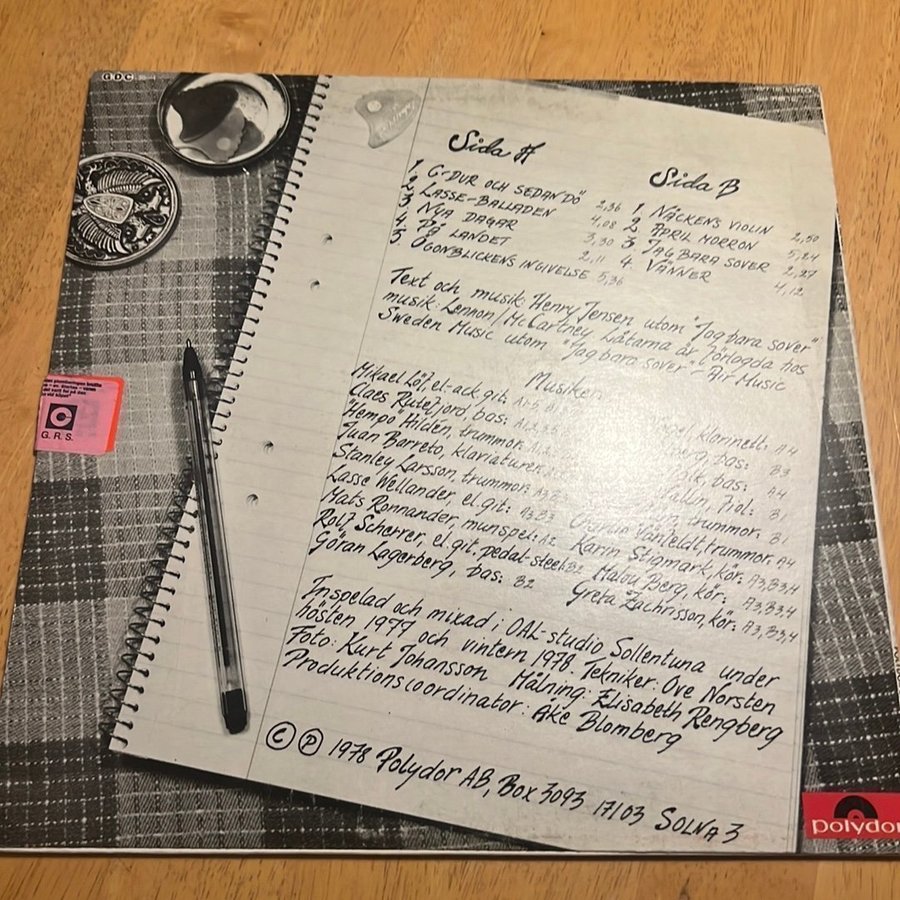 GDC
Sida A
1. G-DUR OCH SEDAN DÖ 2,36
2. LASSE-BALLADEN 4,08
3. NYA DAGAR 3,30
4. PÅ LANDET 2,11
5. ÖGONBLICKENS INGIVELSE 5,36
Sida B
1. NÄCKENS VIOLIN 2,50
2. APRIL MORRON 5,24
3. JAG BARA SOVER 2,27
4. VÄNNER 4,12
Text och musik: Henry Jensen utom "Jag bara sover"
musik: Lennon/McCartney Låtarna är förlagda hos
Sweden Music utom "Jag bara sover" Air Music
Musiker
Mikael Löf, el-ack git:
Claes Rutefjord, bas:
"Hempo" Hildén, trummor:
Juan Barreto, klaviaturer
Stanley Larsson, trummor: A3,B3
Lasse Wellander, el. git: A3,B3
Mats Ronnander, munspel: A2
Rolf Scherrer, el. git, pedal-steel: B2
Göran Lagerberg, bas: B2
klarinett: A4
berg, bas: B3
bas: A4
fiol: B1
trummor: B1
trummor: A4
Karin Stigmark, kör: A3,B3,4
Malou Berg, kör: A3,B3,4
Greta Zachrisson, kör: A3,B3,4
Inspelad och mixad i OAL-studio Sollentuna under
hösten 1977 och vintern 1978. Tekniker: Ove Norsten
Foto: Kurt Johansson Målning: Elisabeth Rengberg
Produktionscoordinator: Åke Blomberg
© ℗ 1978 Polydor AB, Box 3093 17103 SOLNA 3
G.R.S.
polydor